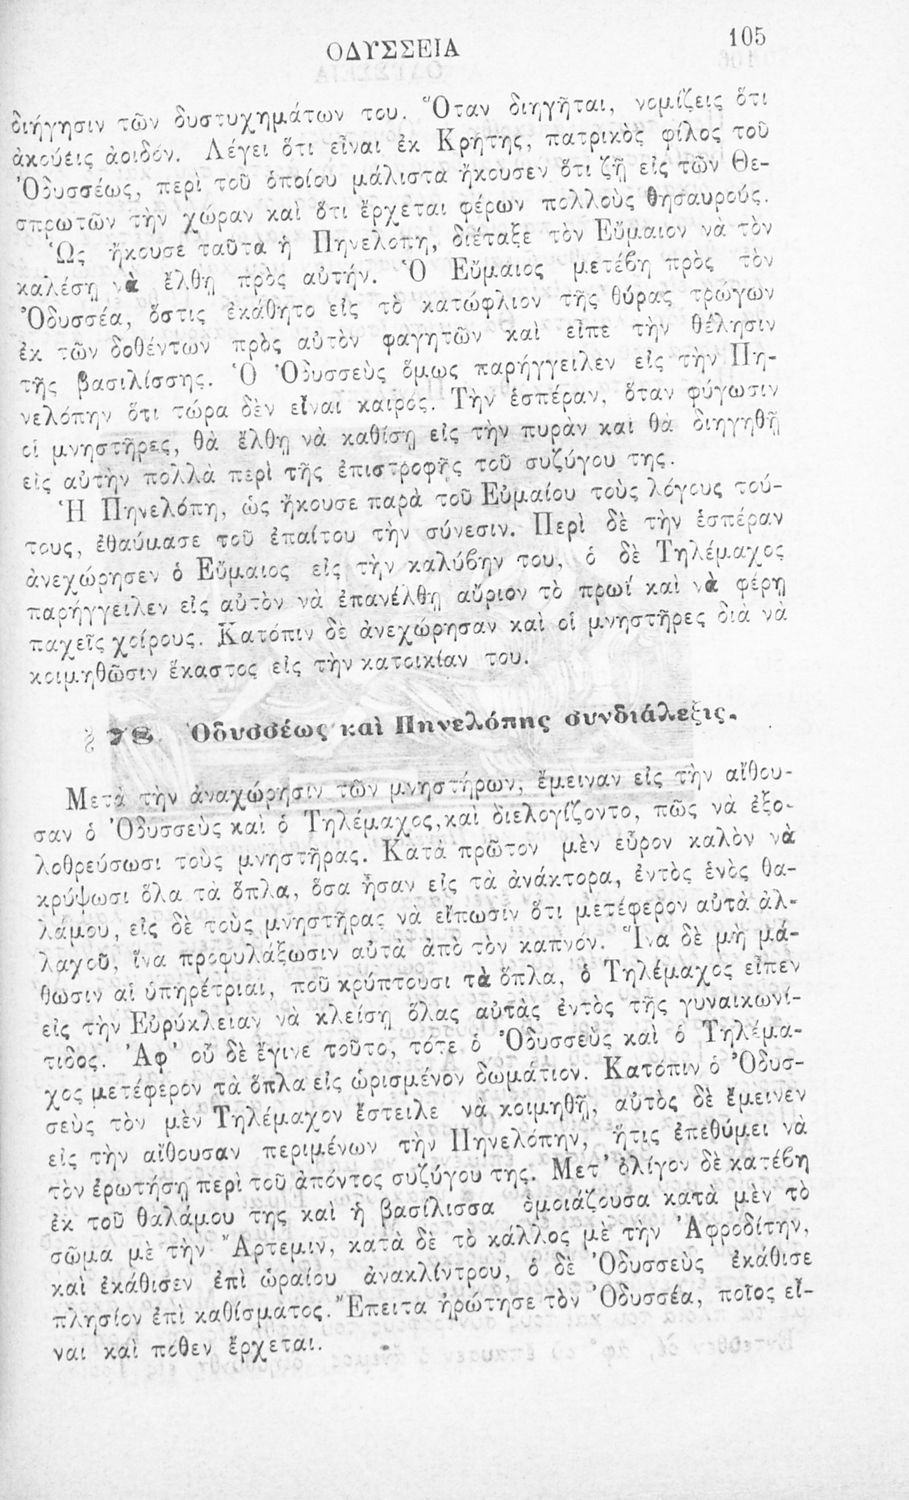 ΟΔΥΣΣΕΙΑ
105
διήγησιν τῶν δυστυχημάτων του. Ὅταν διηγῆται, νομίζεις ὅτι
ἀκούεις ἀοιδόν. Λέγει ὅτι εἶναι ἐκ Κρήτης, πατρικὸς φίλος τοῦ
Ὀδυσσέως, περὶ τοῦ ὁποίου μάλιστα ἤκουσεν ὅτι ζῇ εἰς τῶν Θε-
σπρωτῶν τὴν χώραν καὶ ὅτι ἔρχεται φέρων πολλοὺς θησαυρούς.
Ὡς ἤκουσε ταῦτα ἡ Πηνελοπη, διέταξε τὸν Εὔμαιον νὰ τὸν
καλέσῃ νὰ ἔλθῃ πρὸς αὐτήν. Ὁ Εὔμαιος μετέβη πρὸς τὸν
Ὀδυσσέα, ὅστις ἐκάθητο εἰς τὸ κατώφλιον τῆς θύρας τρώγων
ἐκ τῶν δοθέντων πρὸς αὐτὸν φαγητῶν καὶ εἶπε τὴν θέλησιν
τῆς βασιλίσσης. Ὁ Ὀδυσσεὺς ὅμως παρήγγειλεν εἰς τὴν Πη-
νελόπην ὅτι τώρα δὲν εἶναι καιρός. Τὴν ἑσπέραν, ὅταν φύγωσιν
οἱ μνηστῆρες, θὰ ἔλθῃ νὰ καθίσῃ εἰς τὴν πυρὰν καὶ θὰ διηγηθῇ
εἰς αὐτὴν πολλὰ περὶ τῆς ἐπιστροφῆς τοῦ συζύγου της.
Ἡ Πηνελόπη, ὡς ἤκουσε παρὰ τοῦ Εὐμαίου τοὺς λόγους τού-
τους, ἐθαύμασε τοῦ ἐπαίτου τὴν σύνεσιν. Περὶ δὲ τὴν ἑσπέραν
ἀνεχώρησεν ὁ Εὔμαιος εἰς τὴν καλύβην του, ὁ δὲ Τηλέμαχος
παρήγγειλεν εἰς αὐτὸν νὰ ἐπανέλθῃ αὔριον τὸ πρωΐ καὶ νὰ φέρῃ
παχεῖς χοίρους. Κατόπιν δὲ ἀνεχώρησαν καὶ οἱ μνηστῆρες διὰ νὰ
κοιμηθῶσιν ἕκαστος εἰς τὴν κατοικίαν του.
§ 78. Ὀδυσσέως καὶ Πηνελόπης συνδιάλεξις.
Μετὰ τὴν ἀναχώρησιν τῶν μνηστήρων, ἔμειναν εἰς τὴν αἴθου-
σαν ὁ Ὀδυσσεὺς καὶ ὁ Τηλέμαχος, καὶ διελογίζοντο, πῶς νὰ ἐξο-
λοθρεύσωσι τοὺς μνηστῆρας. Κατὰ πρῶτον μὲν εὗρον καλὸν νὰ
κρύψωσι ὅλα τὰ ὅπλα, ὅσα ἦσαν εἰς τὰ ἀνάκτορα, ἐντὸς ἑνὸς θα-
λάμου, εἰς δὲ τοὺς μνηστῆρας νὰ εἴπωσιν ὅτι μετέφερον αὐτὰ ἀλ-
λαχοῦ, ἵνα προφυλάξωσιν αὐτὰ ἀπὸ τὸν καπνόν. Ἵνα δὲ μὴ μά-
θωσιν αἱ ὑπηρέτριαι, ποῦ κρύπτουσι τὰ ὅπλα, ὁ Τηλέμαχος εἶπεν
εἰς τὴν Εὐρύκλειαν νὰ κλείσῃ ὅλας αὐτὰς ἐντὸς τῆς γυναικωνί-
τιδος. Ἀφ' οὗ δὲ ἔγινε τοῦτο, τότε ὁ Ὀδυσσεὺς καὶ ὁ Τηλέμα-
χος μετέφερον τὰ ὅπλα εἰς ὡρισμένον δωμάτιον. Κατόπιν ὁ Ὀδυσ-
σεὺς τὸν μὲν Τηλέμαχον ἔστειλε νὰ κοιμηθῇ, αὐτὸς δὲ ἔμεινεν
εἰς τὴν αἴθουσαν περιμένων τὴν Πηνελόπην, ἥτις ἐπεθύμει νὰ
τὸν ἐρωτήσῃ περὶ τοῦ ἀπόντος συζύγου της. Μετ' ὀλίγον δὲ κατέβη
ἐκ τοῦ θαλάμου της καὶ ἡ βασίλισσα ὁμοιάζουσα κατὰ μὲν τὸ
σῶμα μὲ τὴν Ἄρτεμιν, κατὰ δὲ τὸ κάλλος μὲ τὴν Ἀφροδίτην,
καὶ ἐκάθισεν ἐπὶ ὡραίου ἀνακλίντρου, ὁ δὲ Ὀδυσσεὺς ἐκάθισε
πλησίον ἐπὶ καθίσματος. Ἔπειτα ἠρώτησε τὸν Ὀδυσσέα, ποῖος εἶ-
ναι καὶ πόθεν ἔρχεται.